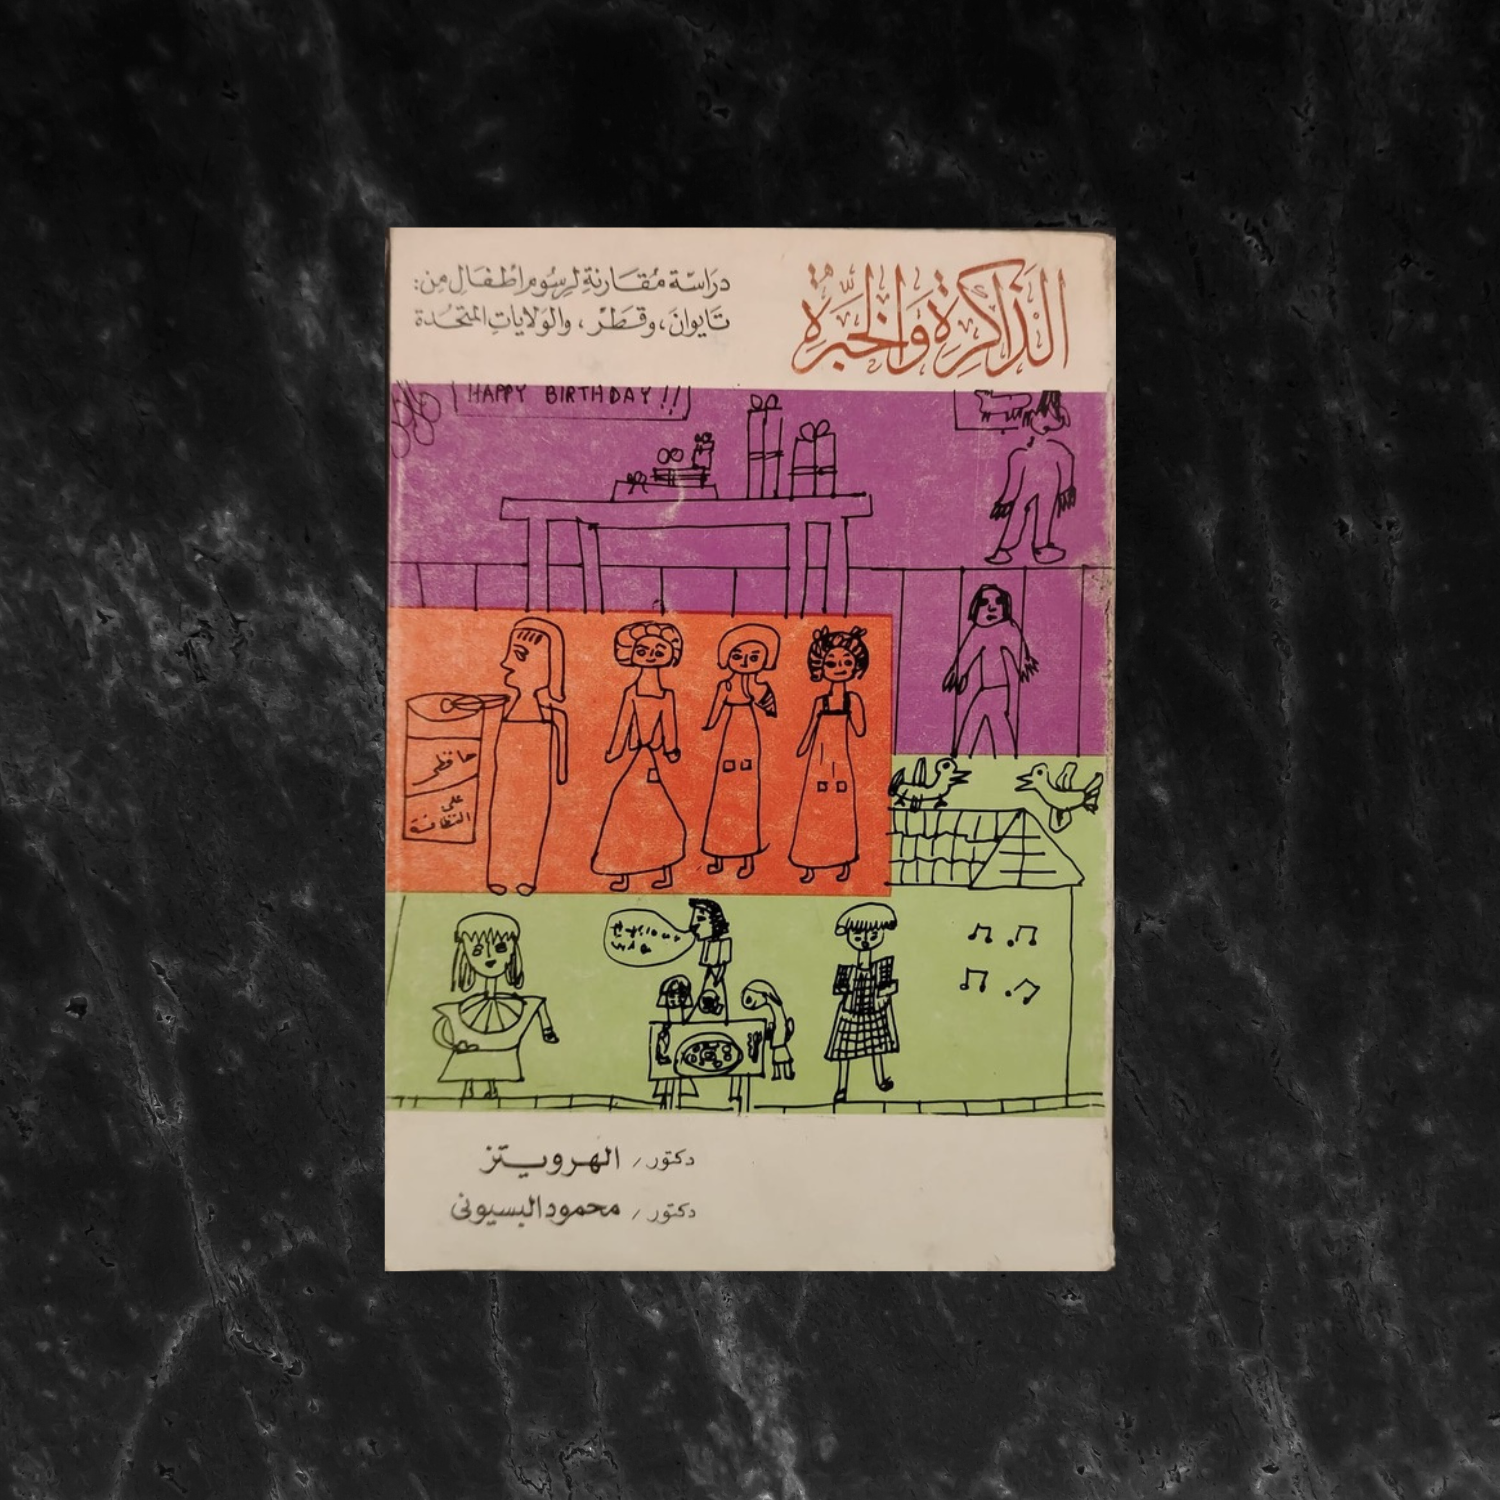 الذَّاكِرَة وَالخِبْرَة
دِرَاسَة مُقَارنَةِ لِرسُوم أطفَالٍ مِن:
تَايوَانَ، وقَطَرْ، والوَلاياتِ المتّحدة
HAPPY BIRTHDAY !!!
حافظ
على
النظافة
دكتور / الهرويتز
دكتور / محمود البسيونى